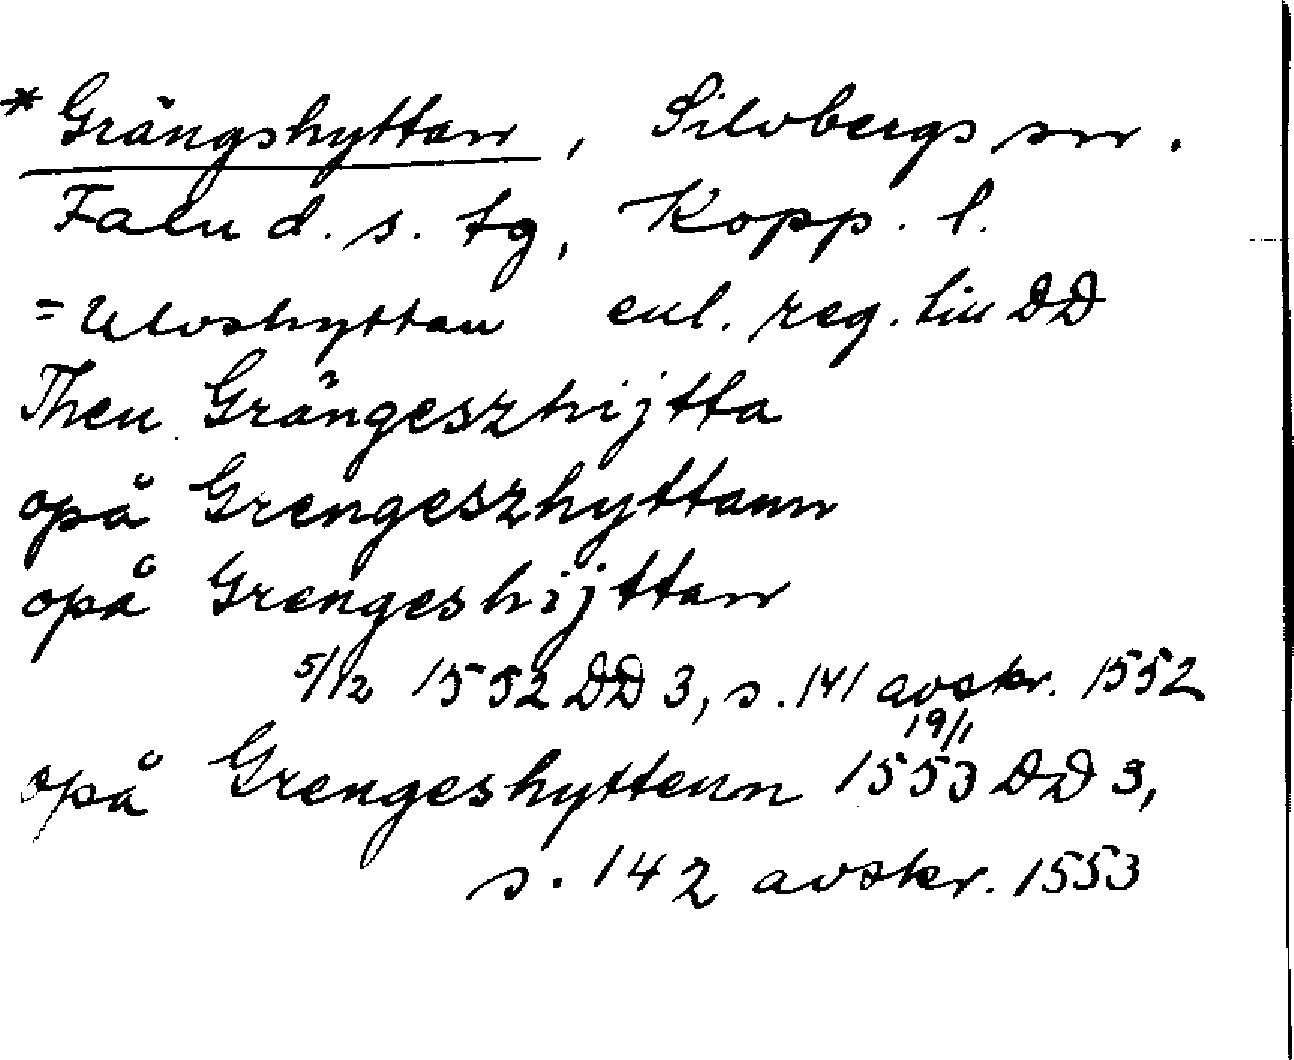 * Grängshyttan, Silvbergs sn.
Falu d. s. tg, Kopp. l.
= Ulvshyttan enl. reg. till DD
Then Grängeszhijtta
opå Grengeszhyttann
opå Grengeshijttan
5/12 1552 DD 3, s. 141 avskr. 1552
19/1
opå Grengeshyttenn 1553 DD 3,
s. 142 avskr. 1553